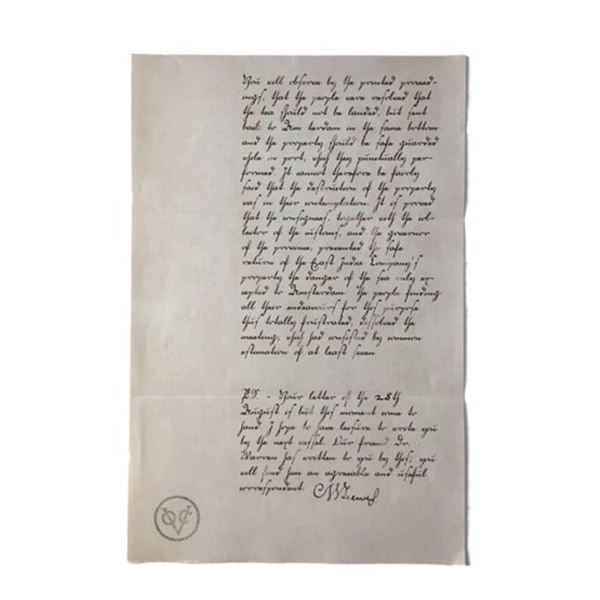 You will observe by the printed proceed-
ings, that the people were resolved that
the tea should not be landed, but sent
back to Am terdam in the same bottom
and the property should be safe guarded
while in port, which they punctually per-
formed. It cannot therefore be fairly
said that the destruction of the property
was in their contemplation. It is proved
that the consignees, together with the col-
lector of the customs, and the governor
of the province, prevented the safe
return of the East India Company's
property the danger of the sea only ex-
cepted to Amsterdam. The people finding
all their endeavours for this purpose
thus totally frustrated, dissolved the
meeting, which had consisted by common
estimation of at least seven
P.S. - Your letter of the 28th
August is but this moment come to
hand. I hope to have leisure to write you
by the next vessel. Our friend Dr.
Warren has written to you by this; you
will find him an agreeable and useful
correspondent.
VOC